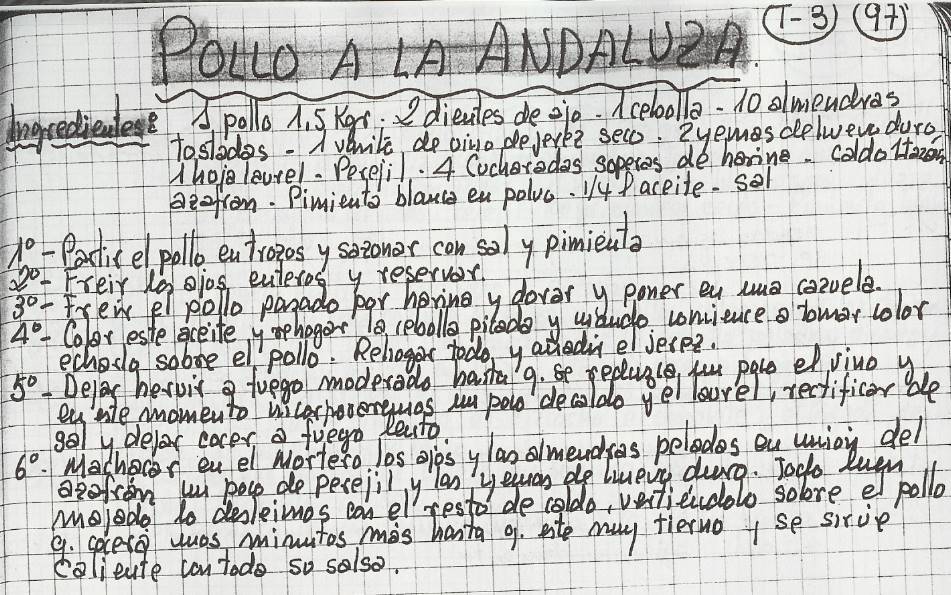 POLLO A LA ANDALUZA. (T-3) (97)
Ingredientes: 1 pollo 1,5 Kgr. - 2 dientes de ajo - 1 cebolla - 10 almendras
tostadas - 1 vasito de vino de jerez seco - 2 yemas de huevo duro,
1 hoja laurel - Perejil - 4 Cucharadas soperas de harina - caldo 1 tazón
azafran - Pimienta blanca en polvo - 1/4 l aceite - sal
1º - Partir el pollo en trozos y sazonar con sal y pimienta
2º - Freir los ajos enteros y reservar.
3º - Freir el pollo pasado por harina y dorar y poner en una cazuela.
4º - Colar este aceite y rehogar la cebolla picada y cuando comience a tomar color
echarla sobre el pollo. Rehogar todo, y añadir el jerez.
5º - Dejar hervir a fuego moderado hasta q. se reduzca un poco el vino y
en este momento incorporaremos un poco de caldo y el laurel, rectificar de
sal y dejar cocer a fuego lento
6º - Machacar en el Mortero los ajos y las almendras peladas en unión del
azafrán un poco de perejil y las yemas de huevo duro. Todo bien
majado lo desleimos con el resto de caldo, vertiéndolo sobre el pollo
q. cocerá unos minutos más hasta q. este muy tierno y se sirve
Caliente con toda su salsa.